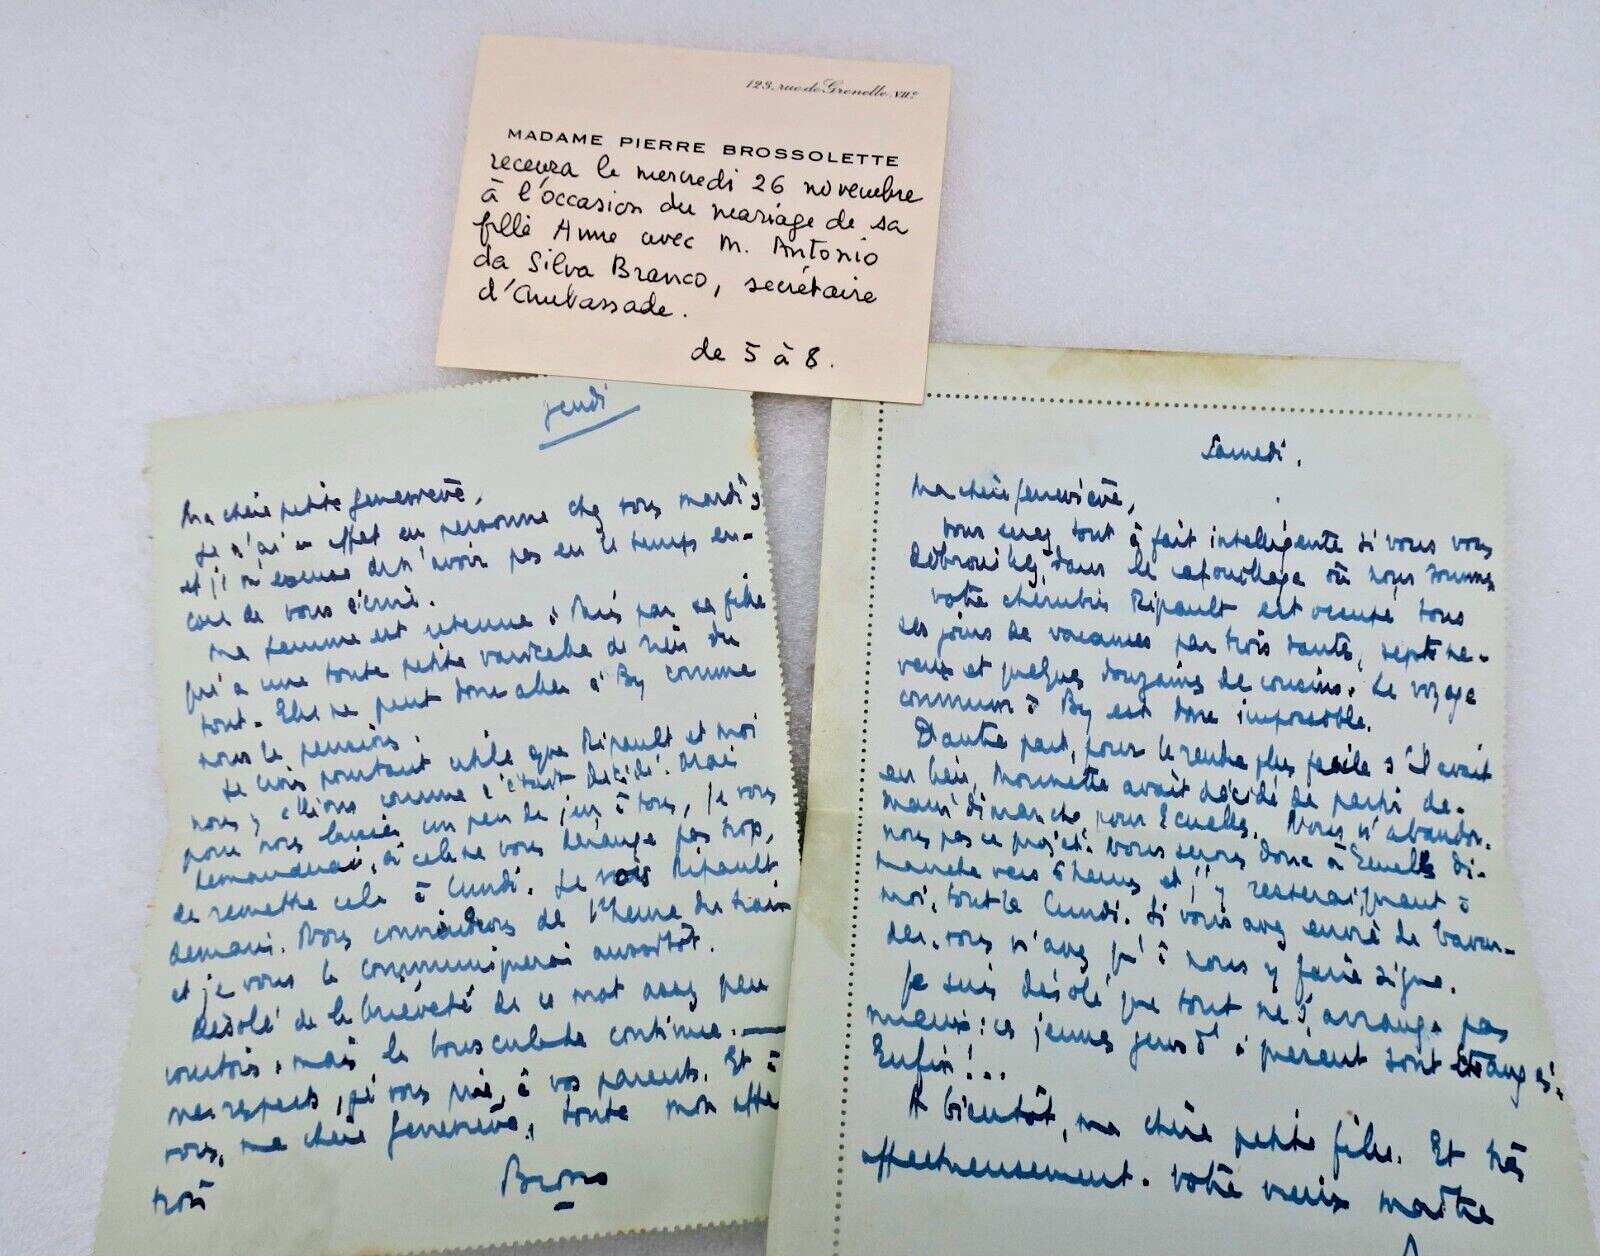 123, rue de Grenelle. VIIe
MADAME PIERRE BROSSOLETTE
recevra le mercredi 26 novembre
à l'occasion du mariage de sa
fille Anne avec M. Antonio
da Silva Branco, secrétaire
d'Ambassade.
de 5 à 8.
jeudi
Ma chère petite Geneviève,
Je n'ai en effet vu personne chez vous mardi
et je m'excuse de n'avoir pas eu le temps en-
core de vous écrire.
Ma femme est retenue à par sa fille
qui a une toute petite varicelle de rien du
tout. Elle ne peut donc aller à By comme
nous le pensions.
Je crois pourtant utile que Ripault et moi
nous y allions comme c'était décidé. Mais
pour nous laisser un peu de jeu à tous, je vous
demanderai, si cela ne vous dérange pas trop,
de remettre cela à lundi. Je vois Ripault
demain. Nous conviendrons de l'heure du train
et je vous la communiquerai aussitôt.
Désolé de la brièveté de ce mot assez peu
courtois, mais la bousculade continue.
Mes respects, je vous prie, à vos parents. Et à
vous, ma chère Geneviève, toute mon affec
tion
Bross
Samedi.
Ma chère Geneviève,
Vous serez tout à fait intelligente si vous vous
débrouillez dans le cafouillage où nous sommes
Votre chérubin Ripault est occupé tous
ses jours de vacances par trois tantes, sept ne-
veux et quelques douzaines de cousins. Le voyage
commun à By est donc impossible.
D'autre part, pour le rendre plus facile s'il avait
eu lieu, Mounette avait décidé de partir de-
main dimanche pour Ecuelles. Nous n'abandon-
nons pas ce projet. Nous serons donc à Ecuelles di-
manche vers 6 heures et j'y resterai, quant à
moi, tout le lundi. Si vous avez envie de bavar-
der, vous n'avez qu'à nous y faire signe.
Je suis désolé que tout ne s'arrange pas
mieux : ces jeunes gens d'à présent sont
Enfin!...
A bientôt, ma chère petite fille. Et très
affectueusement. Votre vieux maître